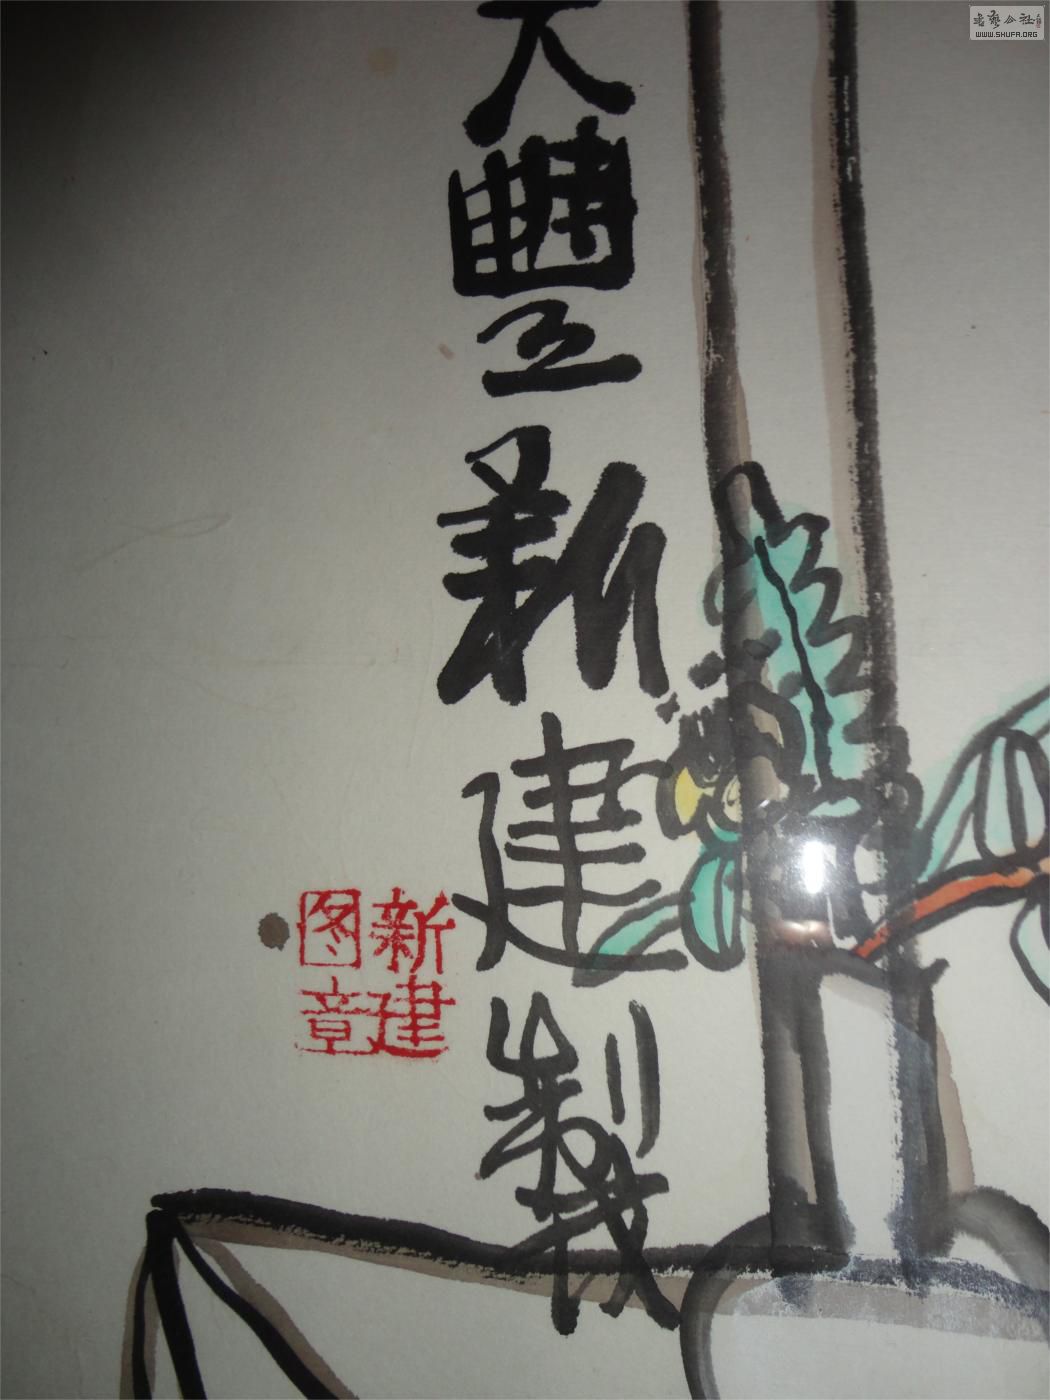 大豐新建製
新建
图章
書藝公社
WWW.SHUFA.ORG